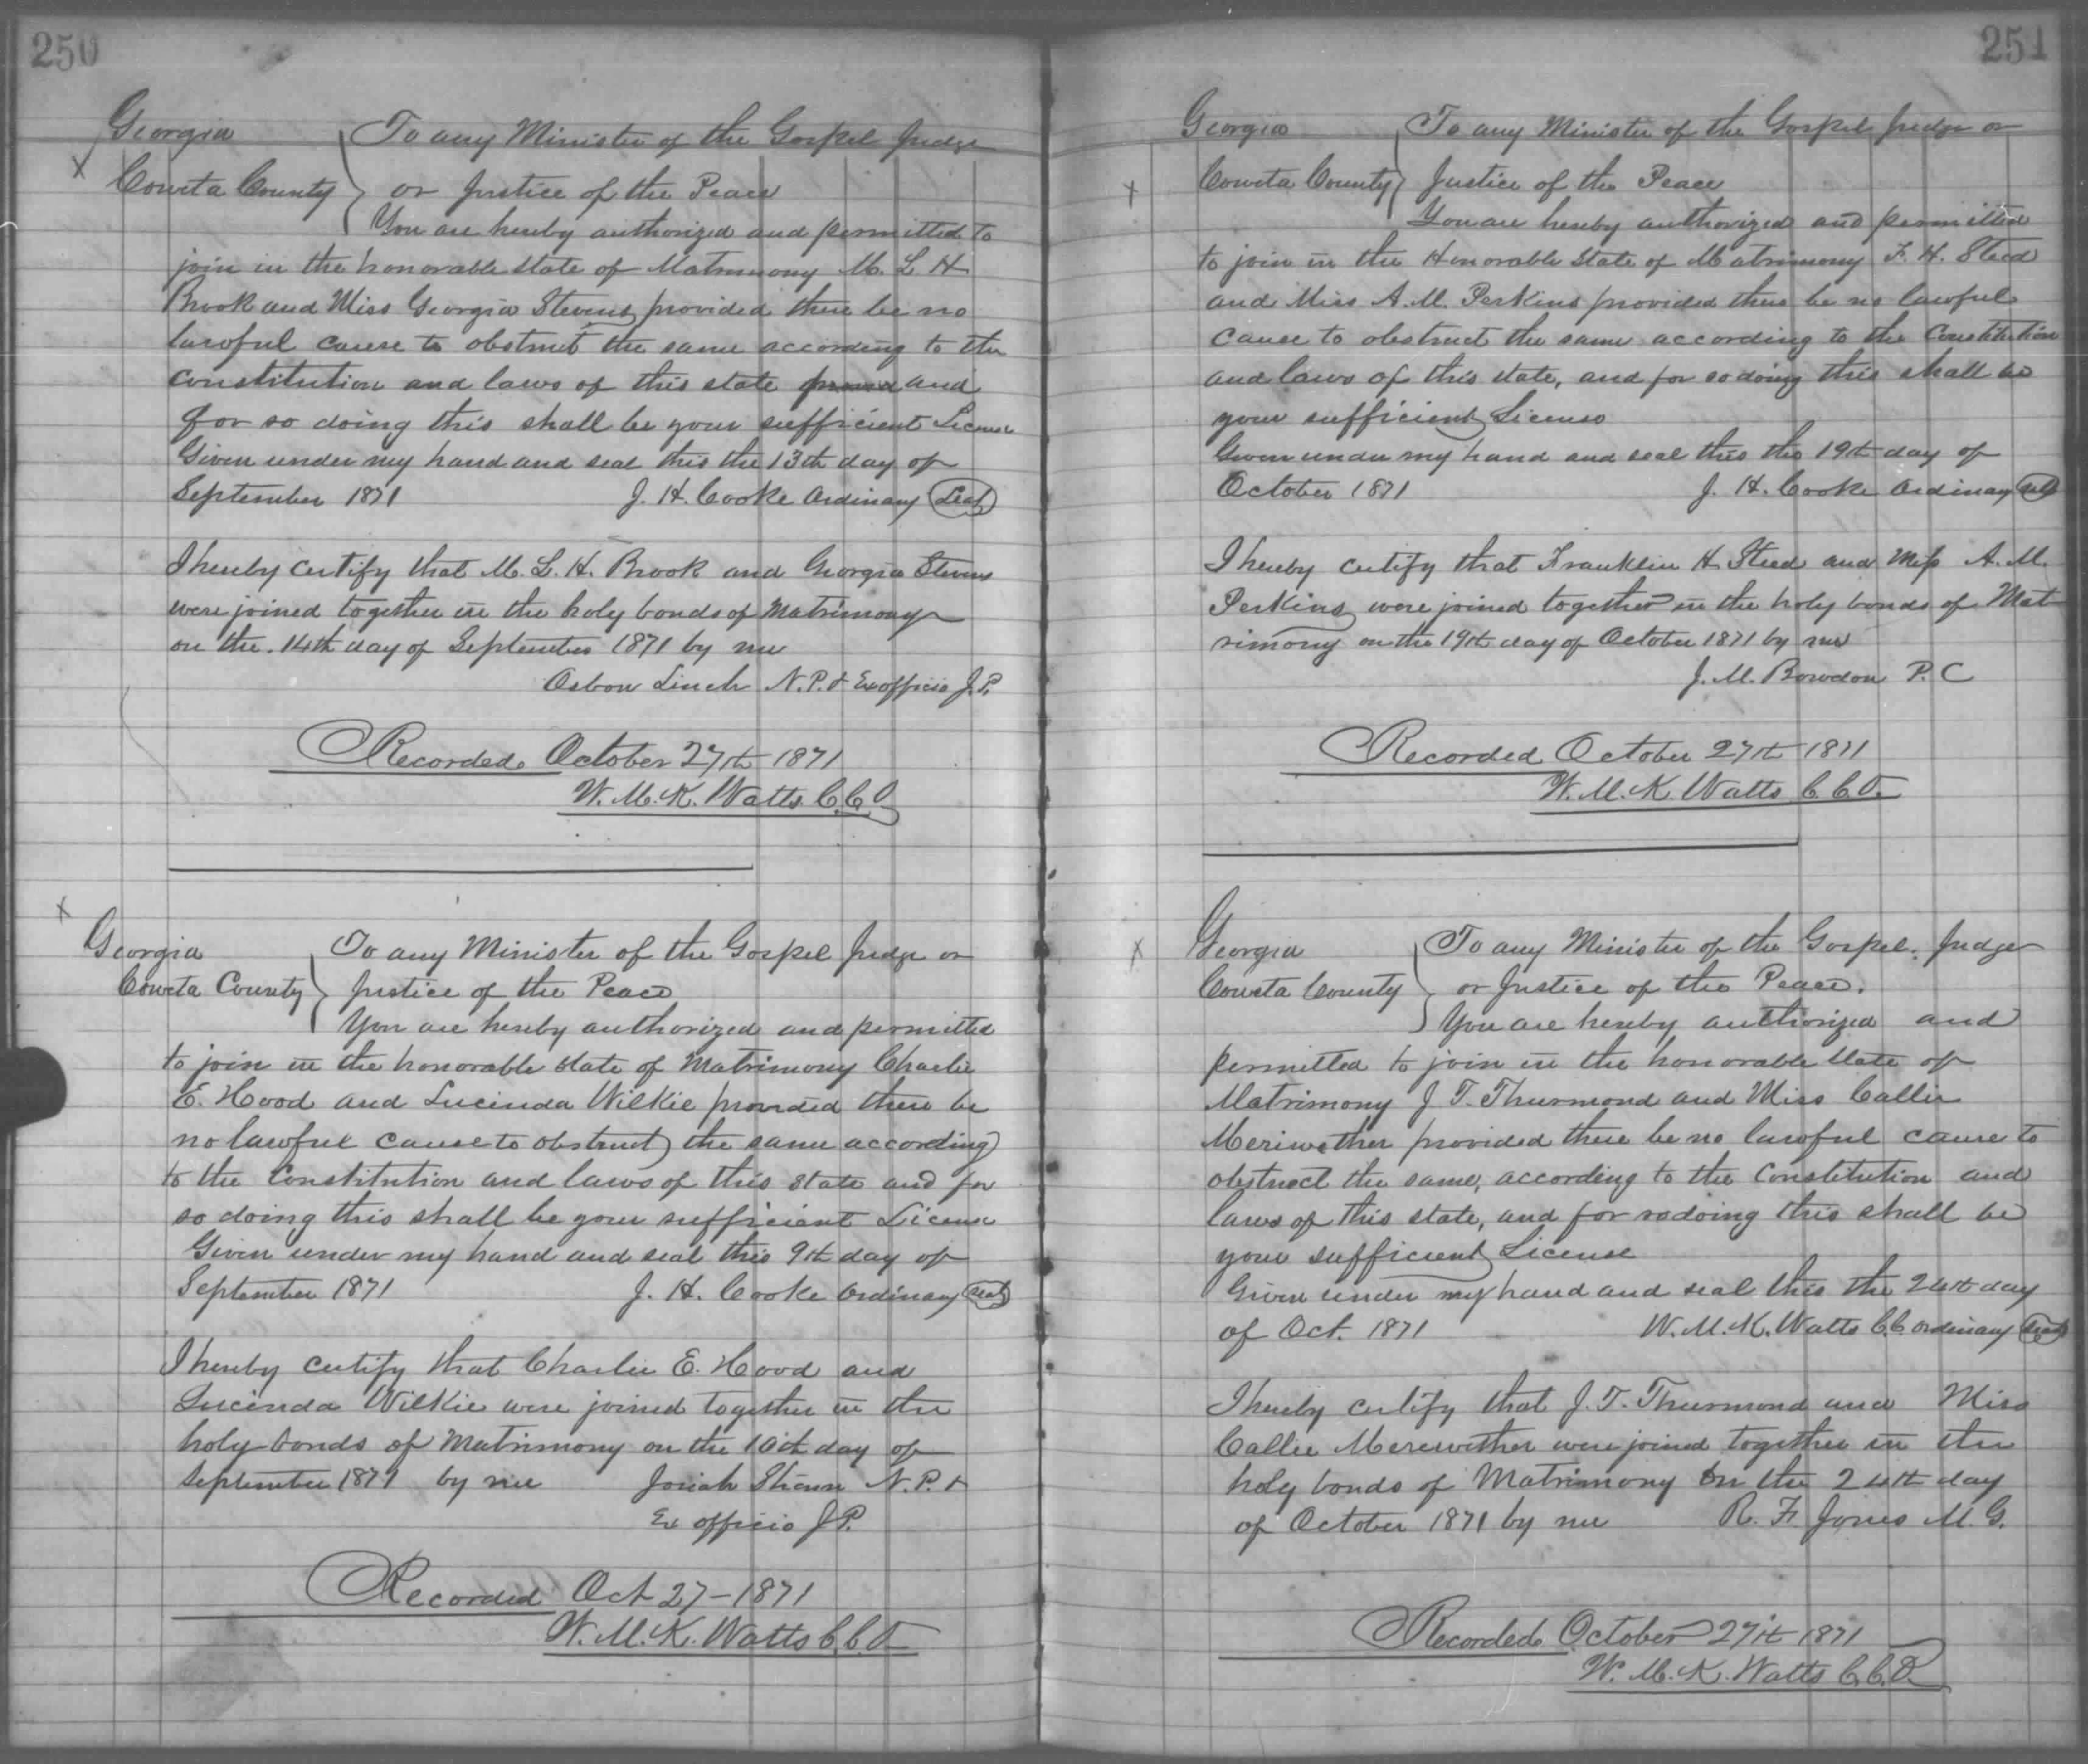 250
Georgia } To any Minister of the Gospel Judge
x Coweta County } or Justice of the Peace
You are hereby authorized and permitted to
join in the honorable state of Matrimony M. L H
Brook and Miss Georgia Stevens provided there be no
lawful cause to obstruct the same according to the
constitution and laws of this state and
for so doing this shall be your sufficient License
Given under my hand and seal this the 13th day of
September 1871 J. H. Cooke Ordinary Seal
I hereby certify that M. L. H. Brook and Georgia Stevens
were joined together in the holy bonds of Matrimony
on the 14th day of September 1871 by me
Osborn Linch N.P. & Exofficio J.P.
Recorded October 27th 1871
W. M. K. Watts C.C.O
x
Georgia } To any Minister of the Gospel Judge or
Coweta County } Justice of the Peace
You are hereby authorized and permitted
to join in the honorable state of Matrimony Charlie
E. Hood and Lucinda Wilkie provided there be
no lawful cause to obstruct the same according
to the Constitution and laws of this state and for
so doing this shall be your sufficient License
Given under my hand and seal this 9th day of
September 1871 J. H. Cooke Ordinary Seal
I hereby certify that Charlie E. Hood and
Lucinda Wilkie were joined together in the
holy bonds of Matrimony on the 10th day of
September 1871 by me Josiah N.P. &
Ex officio J.P.
Recorded Oct 27 - 1871
W. M. K. Watts C.C.O
251
Georgia } To any Minister of the Gospel Judge or
x Coweta County } Justice of the Peace
You are hereby authorized and permitted
to join in the Honorable State of Matrimony F. H. Steed
and Miss A. M. Perkins provided there be no lawful
cause to obstruct the same according to the Constitution
and laws of this state, and for so doing this shall be
your sufficient License
Given under my hand and seal this the 19th day of
October 1871 J. H. Cooke Ordinary Seal
I hereby certify that Franklin H. Steed and Miss A. M.
Perkins were joined together in the holy bonds of Mat
rimony on the 19th day of October 1871 by me
J. M. Bowdon P. C
Recorded October 27th 1871
W. M. K. Watts C.C.O.
x Georgia } To any Minister of the Gospel, Judge
Coweta County } or Justice of the Peace.
You are hereby authorized and
permitted to join in the honorable state of
Matrimony J T. Thurmond and Miss Callie
Meriwether provided there be no lawful cause to
obstruct the same, according to the Constitution and
laws of this state, and for so doing this shall be
your sufficient License
Given under my hand and seal this the 24th day
of Oct. 1871 W. M. K. Watts C.C. Ordinary Seal
I hereby certify that J. T. Thurmond and Miss
Callie Merewether were joined together in the
holy bonds of Matrimony on the 24th day
of October 1871 by me R. F. Jones M. G.
Recorded October 27th 1871
W. M. K. Watts C.C.O.